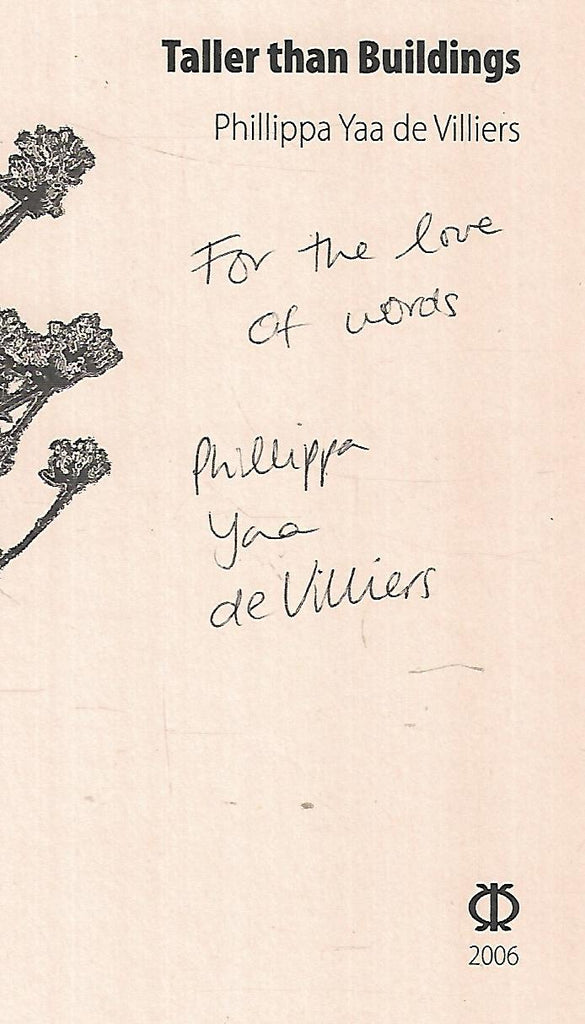 Taller than Buildings
Phillippa Yaa de Villiers
For the love
of words
Phillippa
Yaa
de Villiers
2006